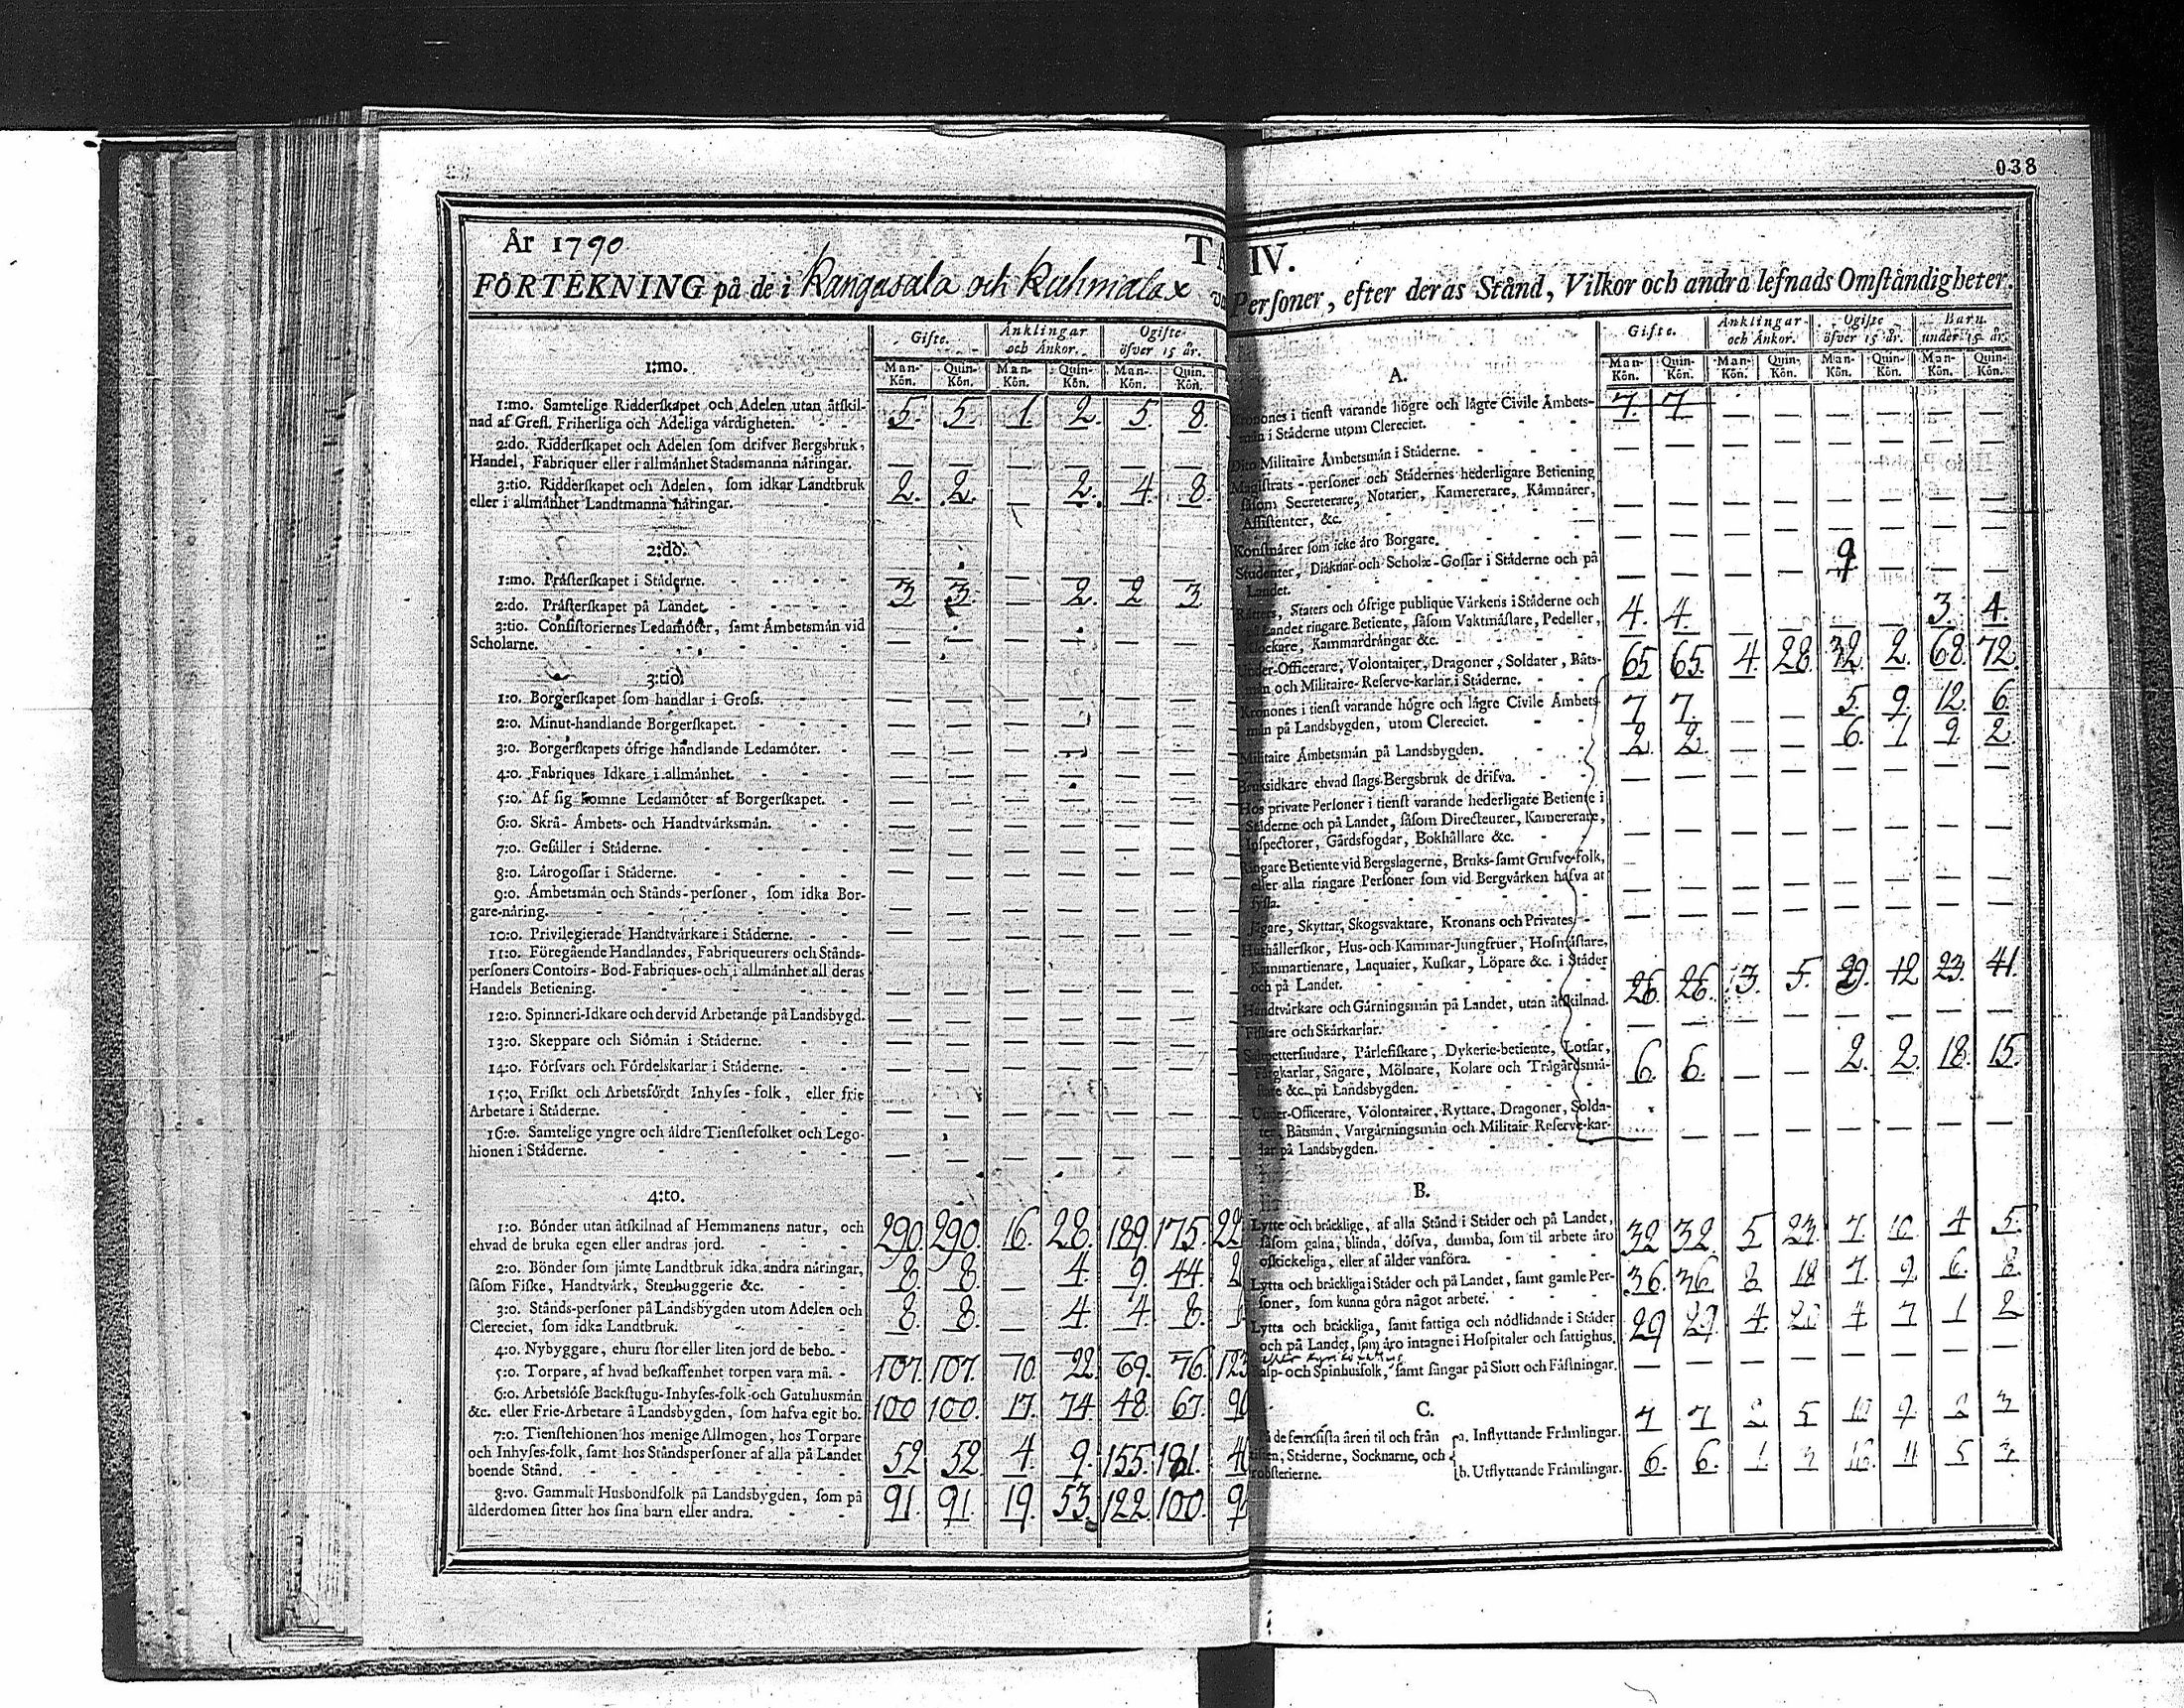 038
År 1790
TA
FÖRTEKNING på de i Kangasala och Kuhmalax
Gifte. Änklingar och Änkor. Ogifte öfver 15 år.
Man-Kön. Quin-Kön. Man-Kön. Quin-Kön. Man-Kön. Quin-Kön.
1:mo.
1:mo. Samtelige Ridderskapet och Adelen utan åtskil-
nad af Grefl. Friherliga och Adeliga värdigheten. 5. 5. 1. 2. 5. 8.
2:do. Ridderskapet och Adelen som drifver Bergsbruk,
Handel, Fabriquer eller i allmänhet Stadsmanna näringar. — — — — — —
3:tio. Ridderskapet och Adelen, som idkar Landtbruk
eller i allmänhet Landtmanna näringar. 2. 2. — 2. 4. 8.
2:do.
1:mo. Prästerskapet i Städerne. — — — — — —
2:do. Prästerskapet på Landet. 3 3 — 2. 2 3
3:tio. Consistoriernes Ledamöter, samt Ämbetsmän vid
Scholarne. — — — — — —
3:tio.
1:o. Borgerskapet som handlar i Gross. — — — — — —
2:o. Minut-handlande Borgerskapet. — — — — — —
3:o. Borgerskapets öfrige handlande Ledamöter. — — — — — —
4:o. Fabriques Idkare i allmänhet. — — — — — —
5:o. Af sig komne Ledamöter af Borgerskapet. — — — — — —
6:o. Skrå- Ämbets- och Handtvärksmän. — — — — — —
7:o. Gesäller i Städerne. — — — — — —
8:o. Lärogossar i Städerne. — — — — — —
9:o. Ämbetsmän och Stånds-personer, som idka Bor-
gare-näring. — — — — — —
10:o. Privilegierade Handtvärkare i Städerne. — — — — — —
11:o. Föregående Handlandes, Fabriqueurers och Stånds-
personers Contoirs- Bod-Fabriques- och i allmänhet all deras
Handels Betiening. — — — — — —
12:o. Spinneri-Idkare och dervid Arbetande på Landsbygd. — — — — — —
13:o. Skeppare och Siömän i Städerne. — — — — — —
14:o. Försvars och Fördelskarlar i Städerne. — — — — — —
15:o. Friskt och Arbetsfördt Inhyses-folk, eller frie
Arbetare i Städerne. — — — — — —
16:o. Samtelige yngre och äldre Tienstefolket och Lego-
hionen i Städerne. — — — — — —
4:to.
1:o. Bönder utan åtskilnad af Hemmanens natur, och
ehvad de bruka egen eller andras jord. 290. 290. 16. 28. 189. 175. 22
2:o. Bönder som jämte Landtbruk idka andra näringar,
såsom Fiske, Handtvärk, Stenhuggerie &c. 8. 8. — 4. 9. 44. 2
3:o. Stånds-personer på Landsbygden utom Adelen och
Clereciet, som idka Landtbruk. 8. 8. — 4. 4. 8.
4:o. Nybyggare, ehuru stor eller liten jord de bebo. — — — — — —
5:o. Torpare, af hvad beskaffenhet torpen vara må. 107. 107. 10. 22. 69. 76. 123
6:o. Arbetslöse Backstugu-Inhyses-folk och Gatuhusmän
&c. eller Frie-Arbetare å Landsbygden, som hafva egit bo. 100 100. 17. 74. 48. 67. 90
7:o. Tienstehionen hos menige Allmogen, hos Torpare
och Inhyses-folk, samt hos Ståndspersoner af alla på Landet
boende Stånd. 52 52. 4. 9. 155. 181. 4
8:vo. Gammalt Husbondfolk på Landsbygden, som på
ålderdomen sitter hos sina barn eller andra. 91. 91. 19. 53. 122. 100. 9
IV.
Personer, efter deras Stånd, Vilkor och andra lefnads Omständigheter.
Gifte. Änklingar och Änkor. Ogifte öfver 15 år. Barn under 15 år.
Man-Kön. Quin-Kön. Man-Kön. Quin-Kön. Man-Kön. Quin-Kön. Man-Kön. Quin-Kön.
A.
i tienst varande högre och lägre Civile Ämbets-
i Städerne utom Clereciet. 7. 7. — — — — — —
Militaire Ämbetsmän i Städerne. — — — — — — — —
Magistrats-personer och Städernes hederligare Betiening
såsom Secreterare, Notarier, Kamererare, Kämnärer,
Assistenter, &c. — — — — — — — —
Konstnärer som icke äro Borgare. — — — — — — — —
Studenter, Diäknar och Scholæ-Gossar i Städerne och på
Landet. — — — — 9 — — —
Staters och öfrige publique Värkens i Städerne och
Landet ringare Betiente, såsom Vaktmästare, Pedeller,
Klockare, Kammardrängar &c. 4. 4. — — — — 3. 4.
Under-Officerare, Volontairer, Dragoner, Soldater, Båts-
män och Militaire-Reserve-karlar i Städerne. 65 65. 4. 28. 32. 2. 68. 72.
Kronones i tienst varande högre och lägre Civile Ämbets-
män på Landsbygden, utom Clereciet. 7 7. — — 5. 9. 12. 6.
Militaire Ämbetsmän på Landsbygden. 2. 2. — — 6. 1 9. 2.
Bruksidkare ehvad slags Bergsbruk de drifva. — — — — — — — —
Hos private Personer i tienst varande hederligare Betiente i
Städerne och på Landet, såsom Directeurer, Kamererare,
Inspectorer, Gårdsfogdar, Bokhållare &c. — — — — — — — —
Ringare Betiente vid Bergslagerne, Bruks- samt Grufve-folk,
eller alla ringare Personer som vid Bergvärken hafva at
sysla. — — — — — — — —
Jägare, Skyttar, Skogsvaktare, Kronans och Privates. — — — — — — — —
Hushållerskor, Hus- och Kammar-Jungfruer, Hofmästare,
Kammartienare, Laquaier, Kuskar, Löpare &c. i Städer
och på Landet.
Handtvärkare och Gärningsmän på Landet, utan åtskilnad. 26. 26. 3. 5. 29. 12 23. 41.
Fiskare och Skärkarlar. — — — — — — — —
Salpettersiudare, Pärlefiskare, Dykerie-betiente, Lotsar,
Färgkarlar, Sågare, Mölnare, Kolare och Trägårdsmä-
stare &c. på Landsbygden. 6. 6. — — 2. 2 18. 15.
Under-Officerare, Volontairer, Ryttare, Dragoner, Solda-
ter, Båtsmän, Vargärningsmän och Militair Reserve-kar-
lar på Landsbygden. — — — — — — —
B.
Lytte och bräcklige, af alla Stånd i Städer och på Landet,
såsom galna, blinda, döfva, dumba, som til arbete äro
oskickeliga, eller af ålder vanföra. 32 32. 5 23. 7. 10. 4 5.
Lytta och bräckliga i Städer och på Landet, samt gamle Per-
soner, som kunna göra något arbete. 36. 36 8 18 7. 9. 6. 8.
Lytta och bräckliga, samt fattiga och nödlidande i Städer
och på Landet, som äro intagne i Hospitaler och fattighus. 29 29. 4. 4 7 1 2
och Spinhusfolk, samt fångar på Slott och Fästningar. — — — — — — — —
C.
de fem sista åren til och från
Städerne, Socknarne, och
a. Inflyttande Främlingar. 7 7 2 5 10 9. 2 3
b. Utflyttande Främlingar. 6. 6. 1 3 16. 11 5 3